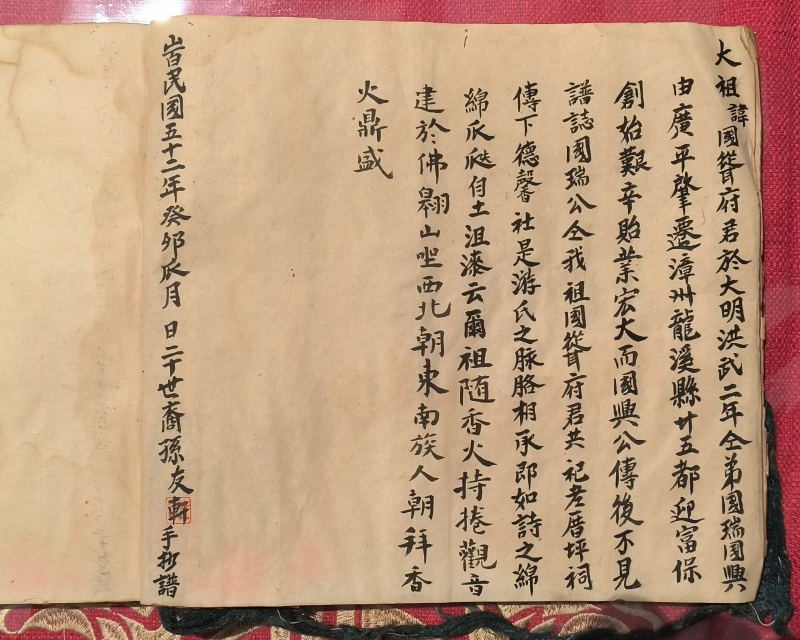 大祖諱國從府君於大明洪武二年仝弟國瑞國興
由廣平肇遷漳州龍溪縣廿五都迎富保
創始艱辛貽業宏大而國興公傳後不見
譜誌國瑞公仝我祖國從府君共祀老厝坪祠
傳下德馨社是游氏之脉胳相承即如詩之綿
綿瓜瓞自土沮漆云爾祖随香火持捲觀音
建於佛翱山坐西北朝東南族人朝拜香
火鼎盛
民國五十二年癸卯瓜月 日二十世裔孫友軒手抄譜